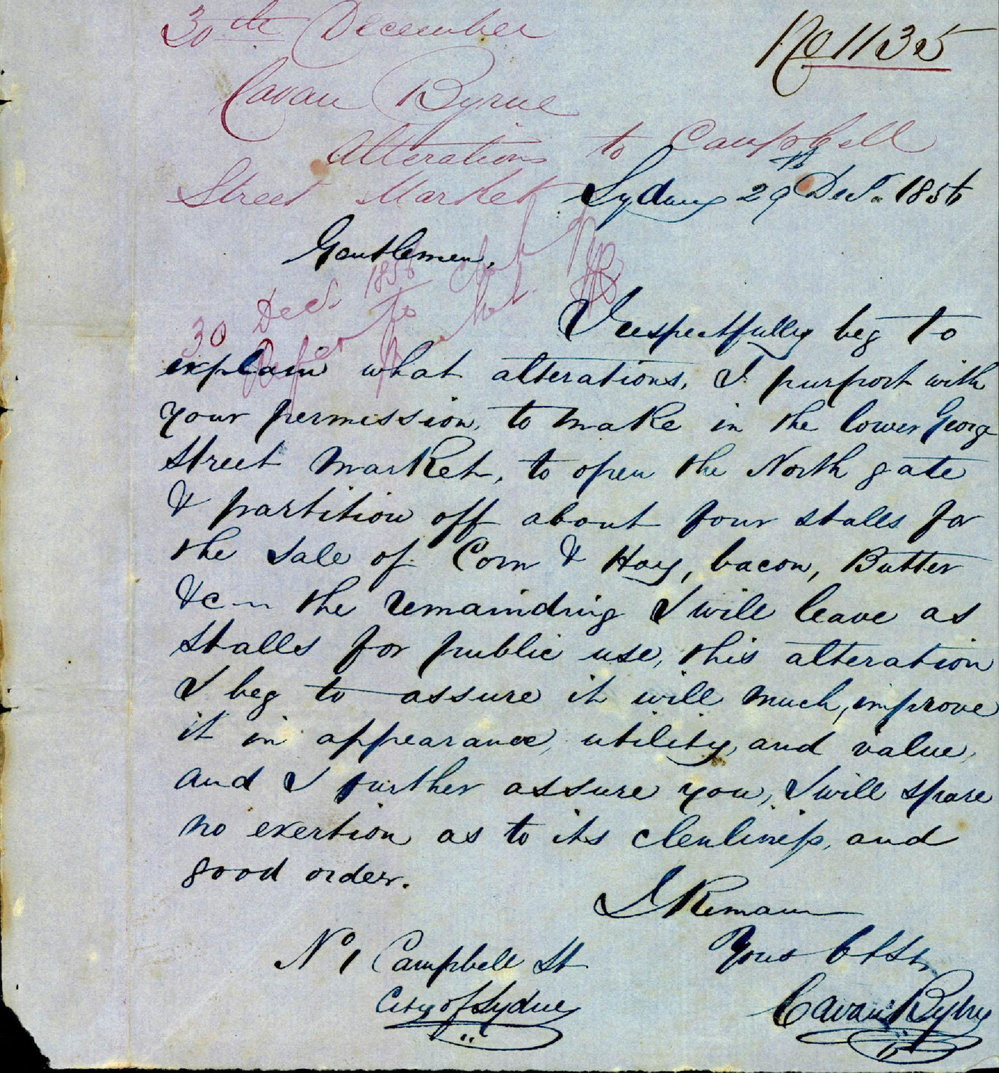 30th December
No 1135
Cavan Byrne
Alterations to Campbell
Street Market
Sydney 29th Decr. 1856
Gentlemen,
30 Decr 1856
Refer to
I respectfully beg to
explain what alterations, I purport with
your permission, to make in the lower George
Street Market, to open the North gate
& partition off about four stalls for
the sale of Corn & Hay, bacon, Butter
&c the remaindring I will leave as
stalls for public use, this alteration
I beg to assure it will much, improve
it in appearance, utility, and value,
and I further assure you, I will spare
no exertion as to its clenliness, and
good order.
I Remain
Yous
No 1 Campbell St
City of Sydney
Cavan Byrne